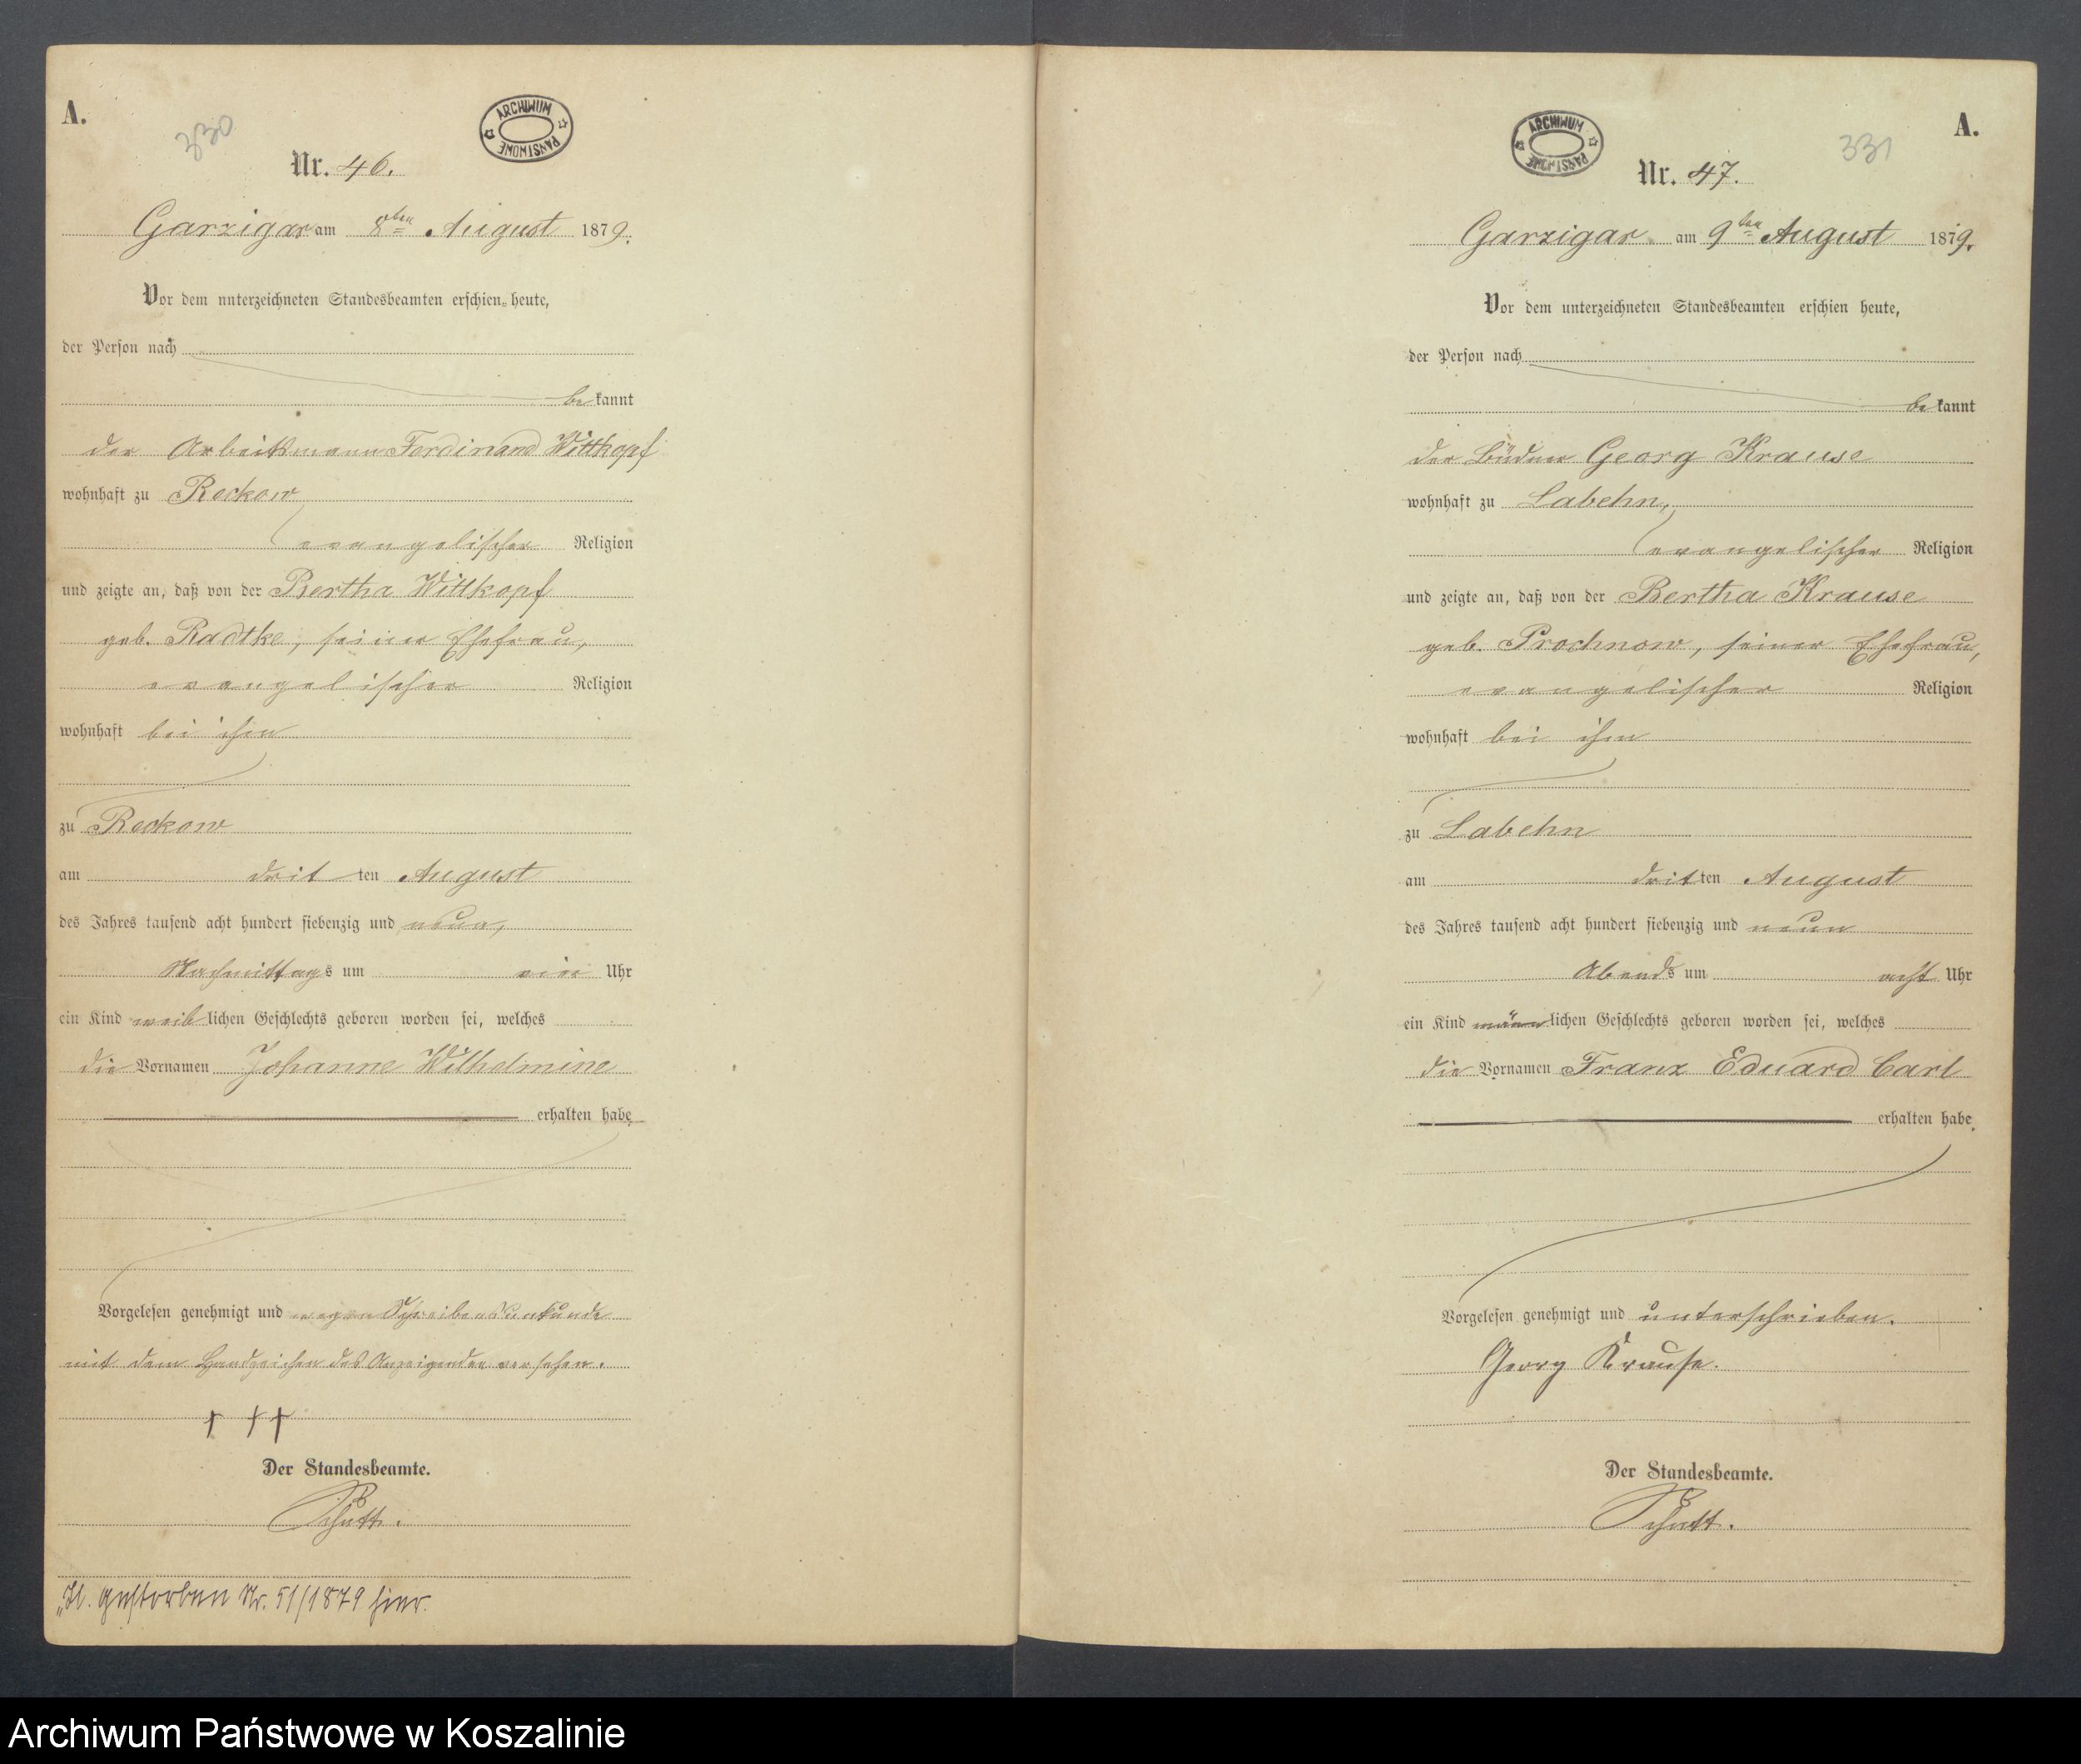 A.
330
ARCHIWUM PAŃSTWOWE
Nr. 46.
Garzigar am 8ten August 1879.
Vor dem unterzeichneten Standesbeamten erschien heute,
der Person nach
bekannt
der Arbeitsmann Ferdinand Wittkopf
wohnhaft zu Reckow
evangelischer Religion
und zeigte an, daß von der Bertha Wittkopf
geb. Radtke, seiner Ehefrau,
evangelischer Religion
wohnhaft bei ihm
zu Reckow
am dritten August
des Jahres tausend acht hundert siebenzig und neun,
Nachmittags um ein Uhr
ein Kind weiblichen Geschlechts geboren worden sei, welches
die Vornamen Johanne Wilhelmine
erhalten habe.
Vorgelesen genehmigt und wegen Schreibensunkunde
mit dem Handzeichen des Anzeigenden versehen.
+ + +
Der Standesbeamte.
gestorben Nr. 51/1879 hier.
A.
331
ARCHIWUM PAŃSTWOWE
Nr. 47.
Garzigar am 9ten August 1879.
Vor dem unterzeichneten Standesbeamten erschien heute,
der Person nach
bekannt
der Büdner Georg Krause
wohnhaft zu Labehn,
evangelischer Religion
und zeigte an, daß von der Bertha Krause
geb. Prochnow, seiner Ehefrau,
evangelischer Religion
wohnhaft bei ihm
zu Labehn
am dritten August
des Jahres tausend acht hundert siebenzig und neun
Abends um acht Uhr
ein Kind männlichen Geschlechts geboren worden sei, welches
die Vornamen Franz Eduard Carl
erhalten habe.
Vorgelesen genehmigt und unterschrieben.
Georg Krause.
Der Standesbeamte.
Archiwum Państwowe w Koszalinie